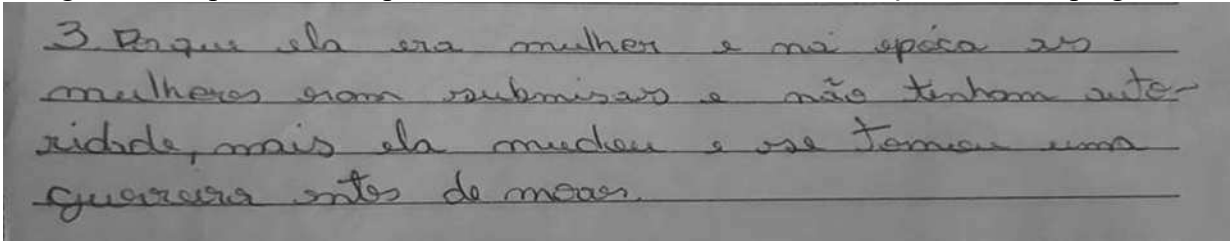 3. Porque ela era mulher e na epóca as
mulheres eram submisas e não tinham auto-
ridade, mais ela mudou e se tornou uma
guerrera antes de